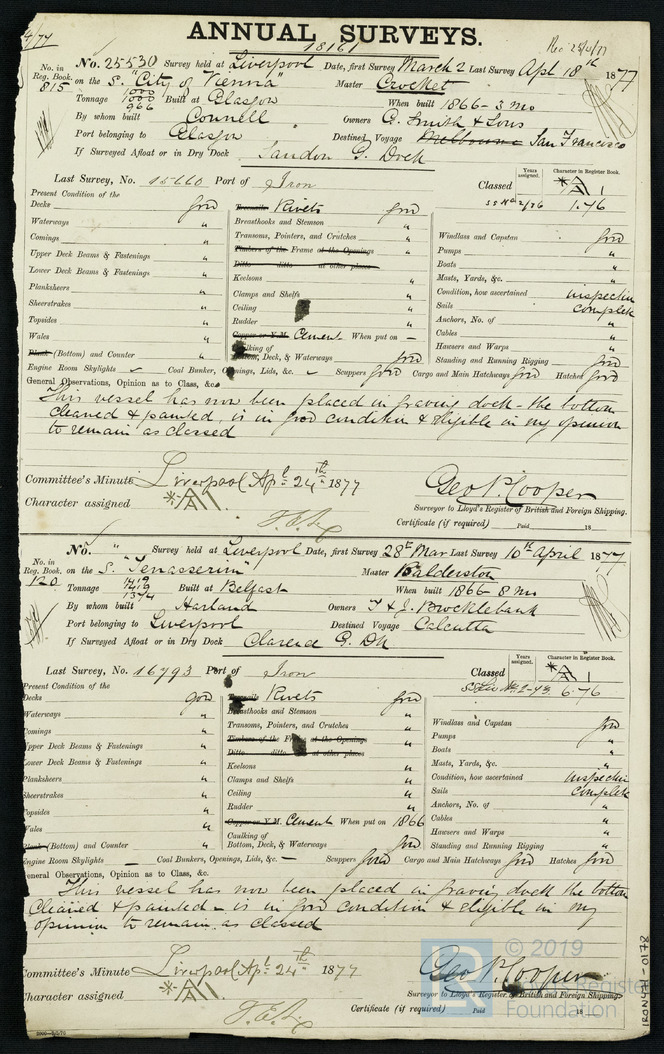 4/77
ANNUAL SURVEYS.
18161
Rec 25/4/77
No. in Reg. Book. No. 25530 Survey held at Liverpool Date, first Survey March 2 Last Survey Apl 18th 1877
815 on the S. "City of Vienna" Master Crocket
Tonnage 1000 1000 966 Built at Glasgow When built 1866 - 3 mo
By whom built Connell Owners G. Smith & Sons
Port belonging to Glasgow Destined Voyage Melbourne San Francisco
If Surveyed Afloat or in Dry Dock Sandon G. Dock
Last Survey, No. 15660 Port of Iron Classed Years assigned. Character in Register Book.
SS No 2/76 A 1 1.76
Present Condition of the
Decks good Treenails Rivets good
Waterways " Breasthooks and Stemson "
Comings " Transoms, Pointers, and Crutches " Windlass and Capstan good
Upper Deck Beams & Fastenings " Timbers of the Frame at the Openings Pumps "
Lower Deck Beams & Fastenings " Ditto ditto at other places Boats "
Planksheers " Keelsons " Masts, Yards, &c. "
Sheerstrakes " Clamps and Shelfs " Condition, how ascertained inspection
Topsides " Ceiling " Sails complete
Wales " Rudder " Anchors, No. of "
Plank (Bottom) and Counter " Copper or Y.M. Cement When put on - Cables "
Caulking of Bottom, Deck, & Waterways good Hawsers and Warps "
Standing and Running Rigging good
Engine Room Skylights Coal Bunker, Openings, Lids, &c. Scuppers good Cargo and Main Hatchways good Hatches good
General Observations, Opinion as to Class, &c.
This vessel has now been placed in graving dock - the bottom
cleaned & painted, is in good condition & eligible in my opinion
to remain as classed
Committee's Minute Liverpool Apl 24th 1877
Character assigned A 1
Geo P. Cooper
Surveyor to Lloyd's Register of British and Foreign Shipping.
Certificate (if required) Paid 18
No. in Reg. Book. No. " Survey held at Liverpool Date, first Survey 28th Mar Last Survey 10th April 1877
120 on the S. "Tenasserim" Master Balderston
Tonnage 1419 1419 1374 Built at Belfast When built 1866 8 mo
By whom built Harland Owners T & J. Brocklebank
Port belonging to Liverpool Destined Voyage Calcutta
If Surveyed Afloat or in Dry Dock Clarence G. Dk
Last Survey, No. 16793 Port of Iron Classed Years assigned. Character in Register Book.
A 1 6.76
Present Condition of the
Decks good Treenails Rivets good
Waterways " Breasthooks and Stemson " Windlass and Capstan good
Comings " Transoms, Pointers, and Crutches " Pumps "
Upper Deck Beams & Fastenings " Timbers of the Frame at the Openings Boats "
Lower Deck Beams & Fastenings " Ditto ditto at other places Masts, Yards, &c. "
Planksheers " Keelsons " Condition, how ascertained inspection
Sheerstrakes " Clamps and Shelfs " Sails complete
Topsides " Ceiling " Anchors, No. of "
Wales " Rudder " Cables "
Plank (Bottom) and Counter " Copper or Y.M. Cement When put on 1866 Hawsers and Warps "
Caulking of Bottom, Deck, & Waterways good Standing and Running Rigging "
Engine Room Skylights - Coal Bunkers, Openings, Lids, &c. - Scuppers good Cargo and Main Hatchways good Hatches good
General Observations, Opinion as to Class, &c.
This vessel has now been placed in graving dock the bottom
cleaned & painted - is in good condition & eligible in my
opinion to remain as classed
Committee's Minute Liverpool Apl 24th 1877
Character assigned A 1
Geo P. Cooper
Surveyor to Lloyd's Register of British and Foreign Shipping.
Certificate (if required) Paid 18
© 2019
Lloyd's Register
Foundation
IRON471-0178